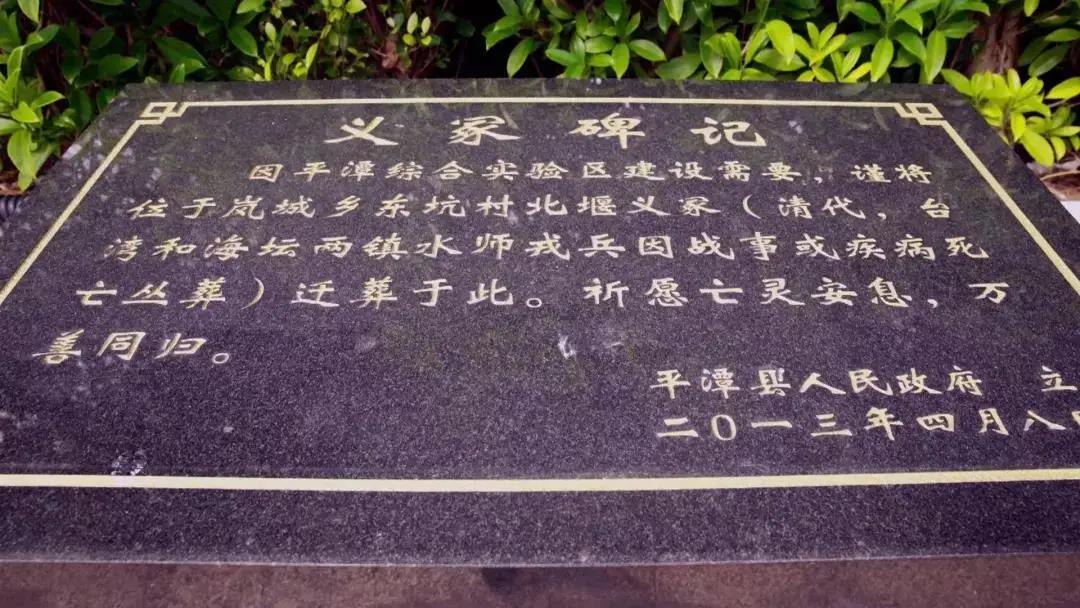 义冢碑记
因平潭综合实验区建设需要，谨将
位于岚城乡东坑村北堰义冢（清代，台
湾和海坛两镇水师戎兵因战事或疾病死
亡丛葬）迁葬于此。祈愿亡灵安息，万
善同归。
平潭县人民政府 立
二0一三年四月八日